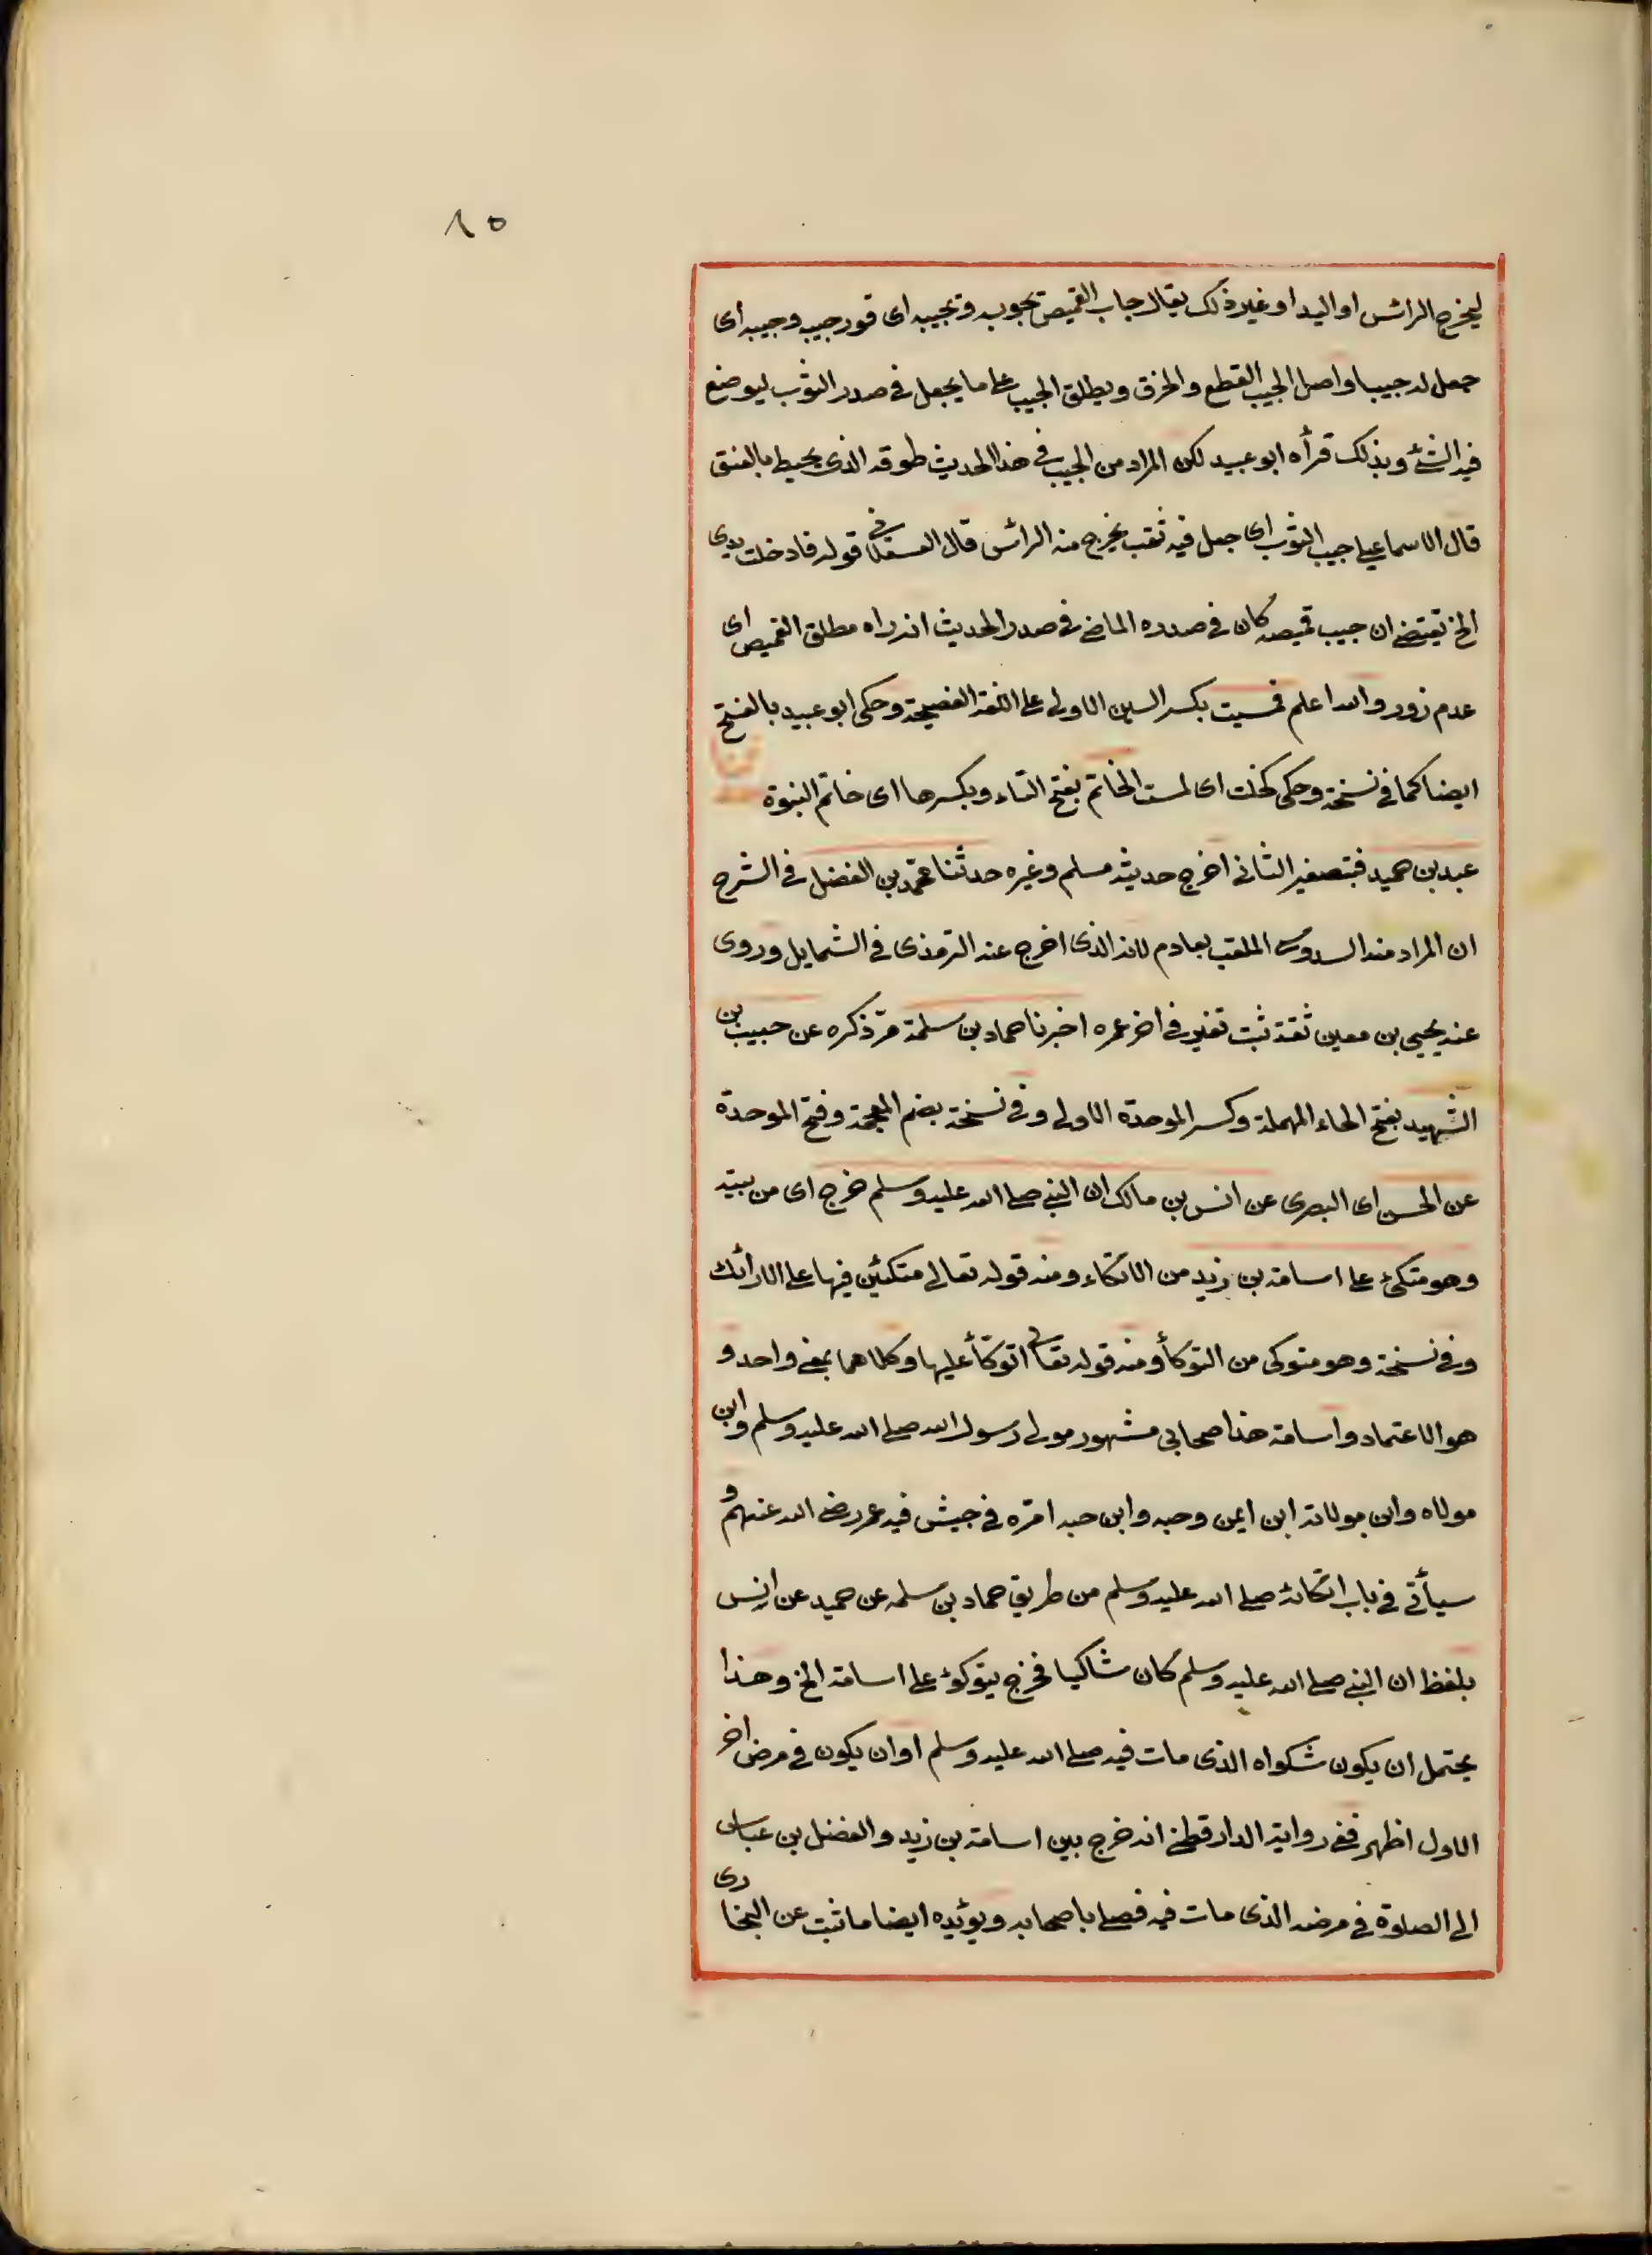 ٨٥
ليخرج الرائس او اليد او غير ذلك يقال جاب القميص يجوبه ويجيبه اى قور جيبه وجيبه أى
جعل له جيبا واصل الجيب القطع والخرق ويطلق الجيب على ما يجعل فى صدر الثوب ليوضع
فيه الشئ وبذلك قرأه ابو عبيد لكن المراد من الجيب فى هذا الحديث طوقه الذى يحيط بالعنق
قال الاسماعيلى جيب الثوب اى جعل فيه ثقب يخرج منه الرائس قال العسقلانى قوله فادخلت يدى
الخ يقتضى ان جيب قميصه كان فى صدره الماضى فى صدر الحديث انه راه مطلق القميص اى
عدم زرور والله اعلم فمسست بكسر السين الاولى على اللغة الفصيحة وحكى ابو عبيد بالفتح
ايضا كما فى نسخة وحكى كخلت اى لمست الخاتم بفتح التاء وبكسرها اى خاتم النبوة
عبد بن حميد فبتصغير الثانى اخرج حديثه مسلم وغيره حدثنا محمد بن الفضل فى الشرح
ان المراد منه السدوسى الملقب بعادم لانه الذى اخرج عنه الترمذى فى الشمايل وروى
عنه يحيى بن معين ثقة ثبت تغير فى اخر عمره اخبرنا حماد بن سلمة مرّ ذكره عن حبيب بن
الشهيد بفتح الحاء المهملة وكسر الموحدة الاولى وفى نسخة بضم المعجمة وفتح الموحدة
عن الحسن اى البصرى عن انس بن مالك ان النبى صلى الله عليه وسلم خرج اى من بيته
وهو متكئ على اسامة بن زيد من الاتكاء ومنه قوله تعالى متكئين فيها على الارائك
وفى نسخة وهو متوكى من التوكأ ومنه قوله تعالى اتوكأ عليها وكلاهما بمعنى واحد و
هو الاعتماد واسامة هذا صحابى مشهور مولى رسول الله صلى الله عليه وسلم وابن
مولاه وابن مولاته ابن ايمن وحبه وابن حبه امّره فى جيش فيه عمر رضى الله عنهم و
سيأتى فى باب اتكائه صلى الله عليه وسلم من طريق حماد بن سلمه عن حميد عن انس
بلفظ ان النبى صلى الله عليه وسلم كان شاكيا فخرج يتوكؤ على اسامة الخ وهذا
يحتمل ان يكون شكواه الذى مات فيه صلى الله عليه وسلم او ان يكون فى مرض اخر
الاول اظهر ففى رواية الدارقطنى انه خرج بين اسامة بن زيد والفضل بن عباس
الى الصلوة فى مرضه الذى مات فيه فصلى باصحابه ويؤيده ايضا ما ثبت عن البخارى